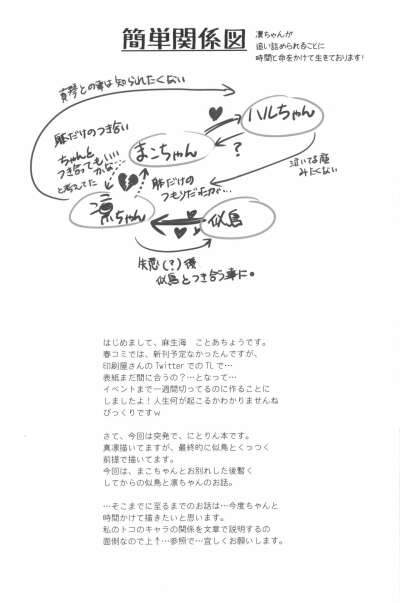 簡単関係図
凛ちゃんが
追い詰められることに
時間と命をかけて生きております!
真琴との事は知られたくない
ハルちゃん
体だけのつき合い
まこちゃん
?
ちゃんと
つき合ってもいい
かな…
と考えてた
泣いてる凛
みたくない
体だけの
つもりだったが…
凛ちゃん
似鳥
失恋(?)後
似鳥とつき合う事に。
はじめまして、麻生海 ことあちょうです。
春コミでは、新刊予定なかったんですが、
印刷屋さんのTwitterでのTLで…
表紙まだ間に合うの?…となって…
イベントまで一週間切ってるのに作ることに
しましたよ!人生何が起こるかわかりませんね
びっくりですw
さて、今回は突発で、にとりん本です。
真凛描いてますが、最終的に似鳥とくっつく
前提で描いてます。
今回は、まこちゃんとお別れした後暫く
してからの似鳥と凛ちゃんのお話。
…そこまでに至るまでのお話は…今度ちゃんと
時間かけて描きたいと思います。
私のトコのキャラの関係を文章で説明するの
面倒なので上↑…参照で…宜しくお願いします。